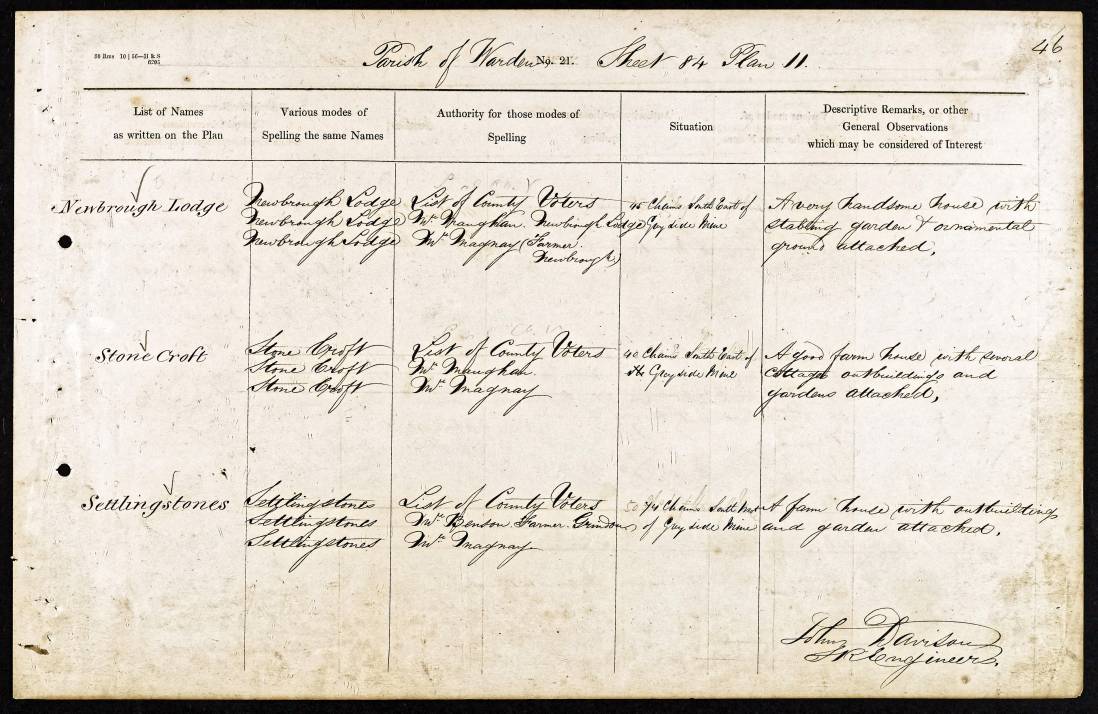 46
Parish of Warden No. 21. Sheet 84 Plan 11.
List of Names
as written on the Plan
Various modes of
Spelling the same Names
Authority for those modes of
Spelling
Situation
Descriptive Remarks, or other
General Observations
which may be considered of Interest
Newbrough Lodge
Newbrough Lodge
Newbrough Lodge
Newbrough Lodge
List of County Voters
Mr. Maughan. Newbrough Lodge
Mr. Magnay (Farmer.
Newbrough)
45 Chains South East of
Greyside Mine
A very handsome house with
stabling garden & ornamental
ground attached.
Stone Croft
Stone Croft
Stone Croft
Stone Croft
List of County Voters
Mr. Maughan.
Mr. Magnay
40 Chains South East of
Greyside Mine
A good farm house with several
cottages outbuildings and
gardens attached.
Settlingstones
Settlingstones
Settlingstones
Settlingstones
List of County Voters
Mr. Benson Farmer. Grindon
Mr. Magnay
74 Chains South West
of Greyside Mine
A farm house with outbuildings
and garden attached.
John Davison
Engineers.